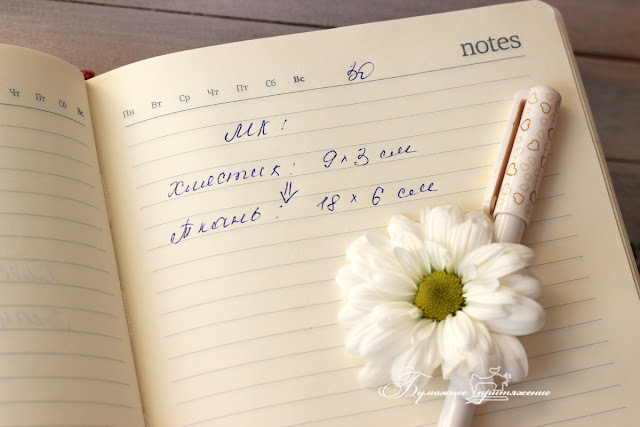 notes
Чт Пт Сб Вс
Пн Вт Ср Чт Пт Сб Вс 30
МК:
Хлястик: 9 х 3 см
⇓
Ткань: 18 х 6 см
Бумажное притяжение